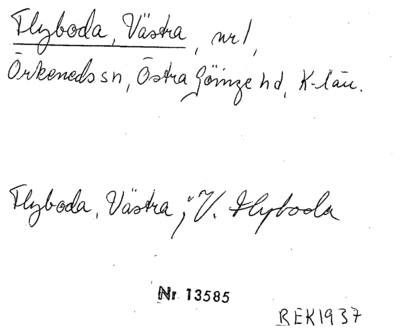 Flyboda, Västra, nr 1,
Örkeneds sn, Östra Göinge hd, K-län.
Flyboda, Västra; V. Flyboda
Nr 13585
REK1937